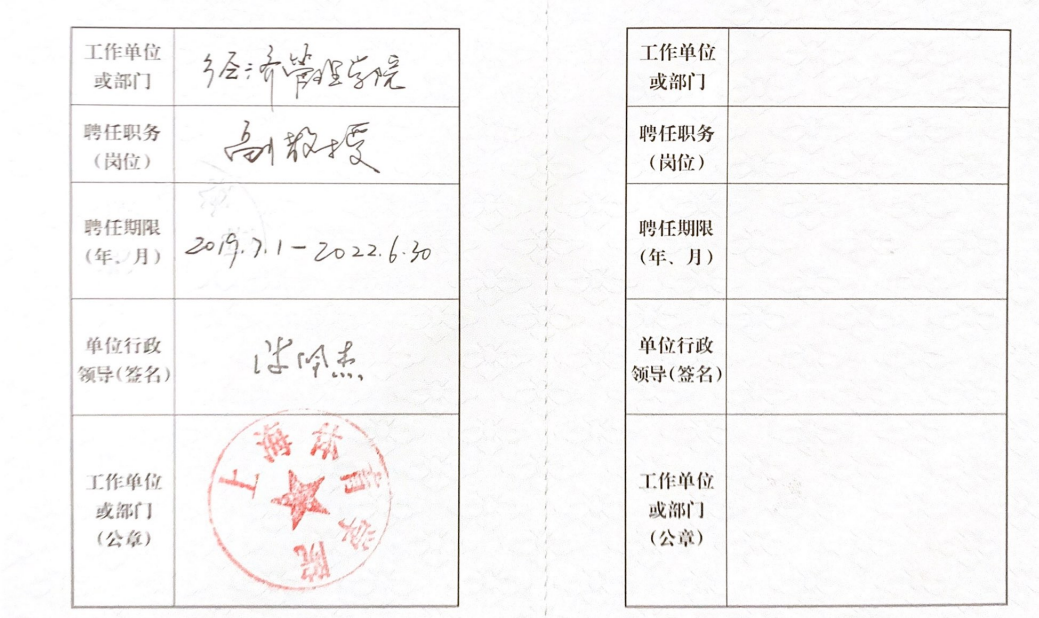 工作单位
或部门
经济管理学院
聘任职务
（岗位）
副教授
聘任期限
（年、月）
2019.7.1—2022.6.30
单位行政
领导（签名）
工作单位
或部门
（公章）
上海体育学院
工作单位
或部门
聘任职务
（岗位）
聘任期限
（年、月）
单位行政
领导（签名）
工作单位
或部门
（公章）